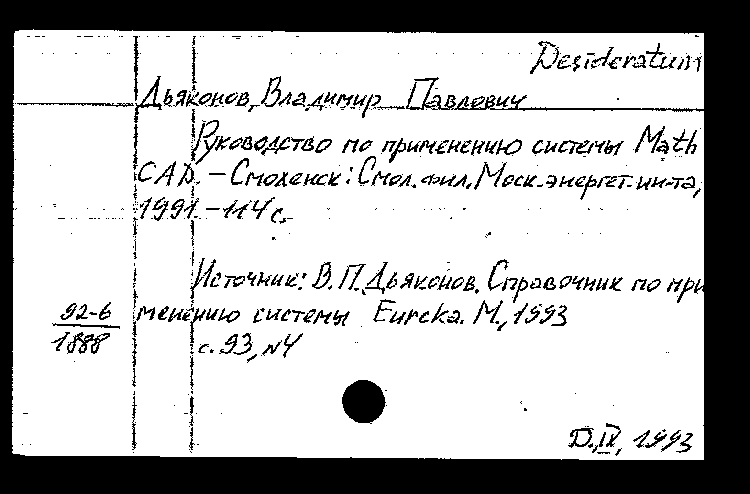 Desideratum
Дьяконов, Владимир Павлович
Руководство по применению системы Math
CAD. – Смоленск: Смол. фил. Моск. энергет. ин-та,
1991. – 114 с.
Источник: В.П. Дьяконов. Справочник по при
менению системы Eureka. М., 1993
с. 93, №4
92-6
1888
D. IX, 1993